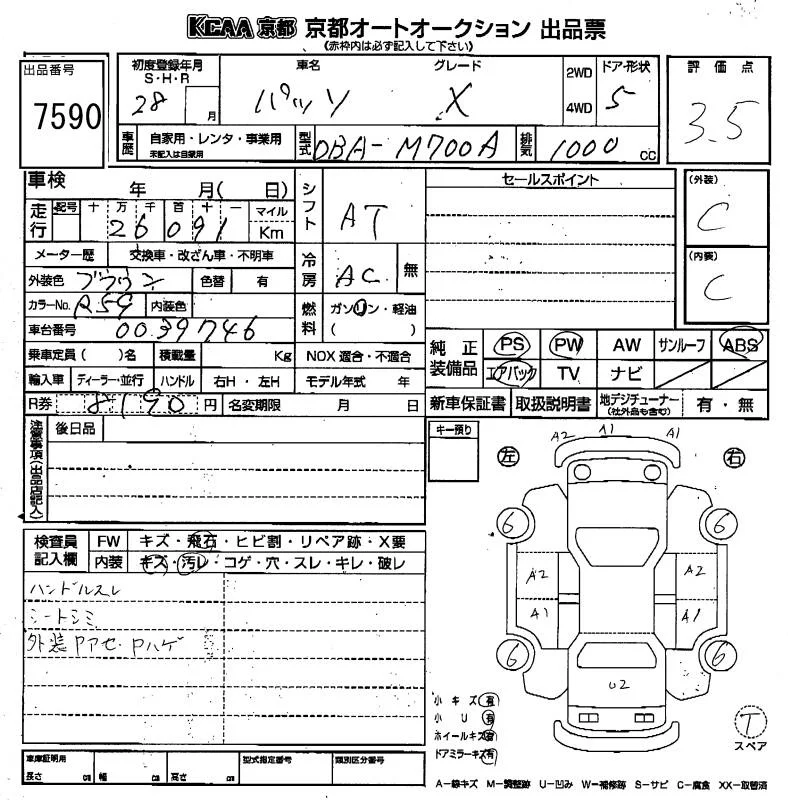 KCAA 京都 京都オートオークション 出品票
(赤枠内は必ず記入して下さい)
出品番号
7590
初度登録年月
S・H・R
28
月
車名
パッソ
グレード
X
2WD
4WD
ドア・形状
5
評価点
3.5
車歴
自家用・レンタ・事業用
未記入は自家用
型式
DBA-M700A
排気
1000
cc
車検
年 月( 日)
走行
記号
十 万 千 百 十 一
26091
マイル
Km
メーター歴
交換車・改ざん車・不明車
外装色
ブラウン
色替
有
カラーNo.
R59
内装色
車台番号
0039746
乗車定員( )名
積載量
Kg
輸入車
ディーラー・並行
ハンドル
右H・左H
R券
8190 円
名変期限
月 日
シフト
AT
冷房
AC
無
燃料
ガソリン・軽油
( )
NOX 適合・不適合
モデル年式 年
セールスポイント
(外装)
C
(内装)
C
純正装備品
PS
PW
AW
サンルーフ
ABS
エアバック
TV
ナビ
新車保証書
取扱説明書
地デジチューナー
(社外品も含む)
有・無
注意事項(出品店記入)
後日品
キー預り
検査員記入欄
FW
キズ・飛石・ヒビ割・リペア跡・X要
内装
キズ・汚レ・コゲ・穴・スレ・キレ・破レ
ハンドルスレ
シートシミ
外装Pアセ・Pハゲ
左
右
A2 A1 A1
6
6
A2
A2
A1
A1
6
6
U2
小キズ 有
小U 有
ホイールキズ 有
ドアミラーキズ 有
T
スペア
車庫証明用
長さ cm
幅 cm
高さ cm
型式指定番号
類別区分番号
A-線キズ M-調整跡 U-凹み W-補修跡 S-サビ C-腐食 XX-取替済